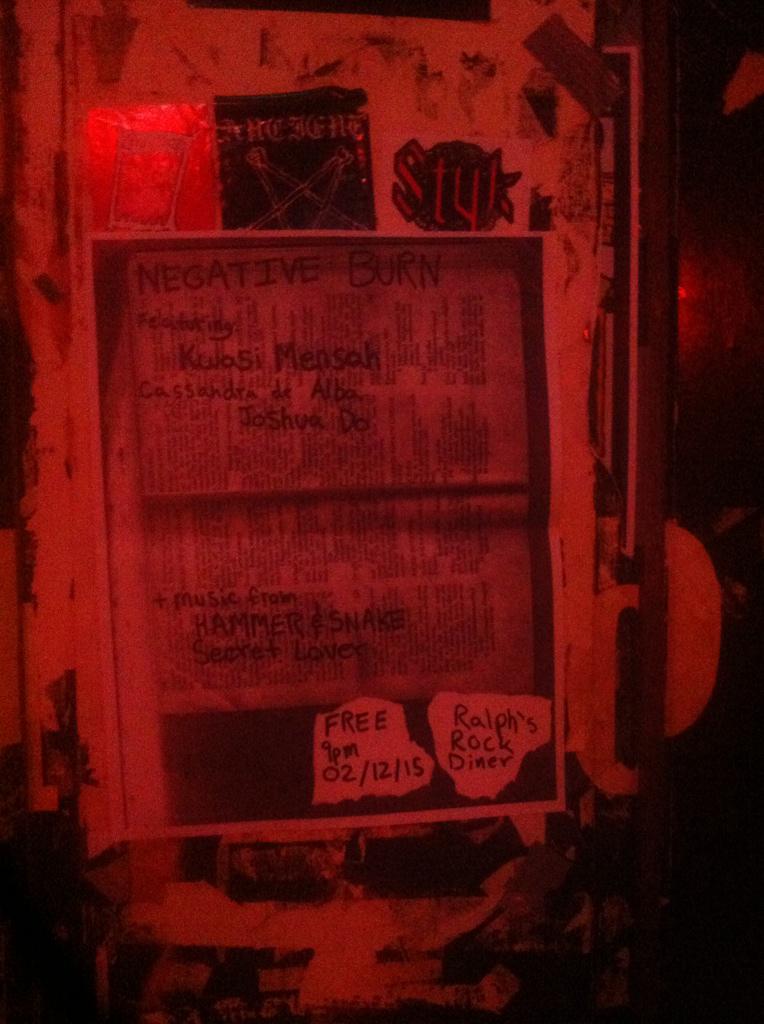 ANCIENT
Styk
NEGATIVE BURN
Featuring:
Kwasi Mensah
Cassandra de Alba
Joshua Do
+ music from
HAMMER & SNAKE
Secret Lover
FREE
9pm
02/12/15
Ralph's
Rock
Diner